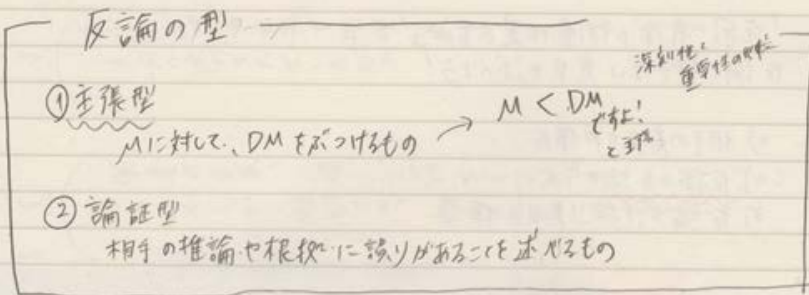 反論の型
①主張型
Mに対して、DMをぶつけるもの → M < DM
ですよ!
と主張
深刻性と
重要性の
②論証型
相手の推論や根拠に誤りがあることを述べるもの